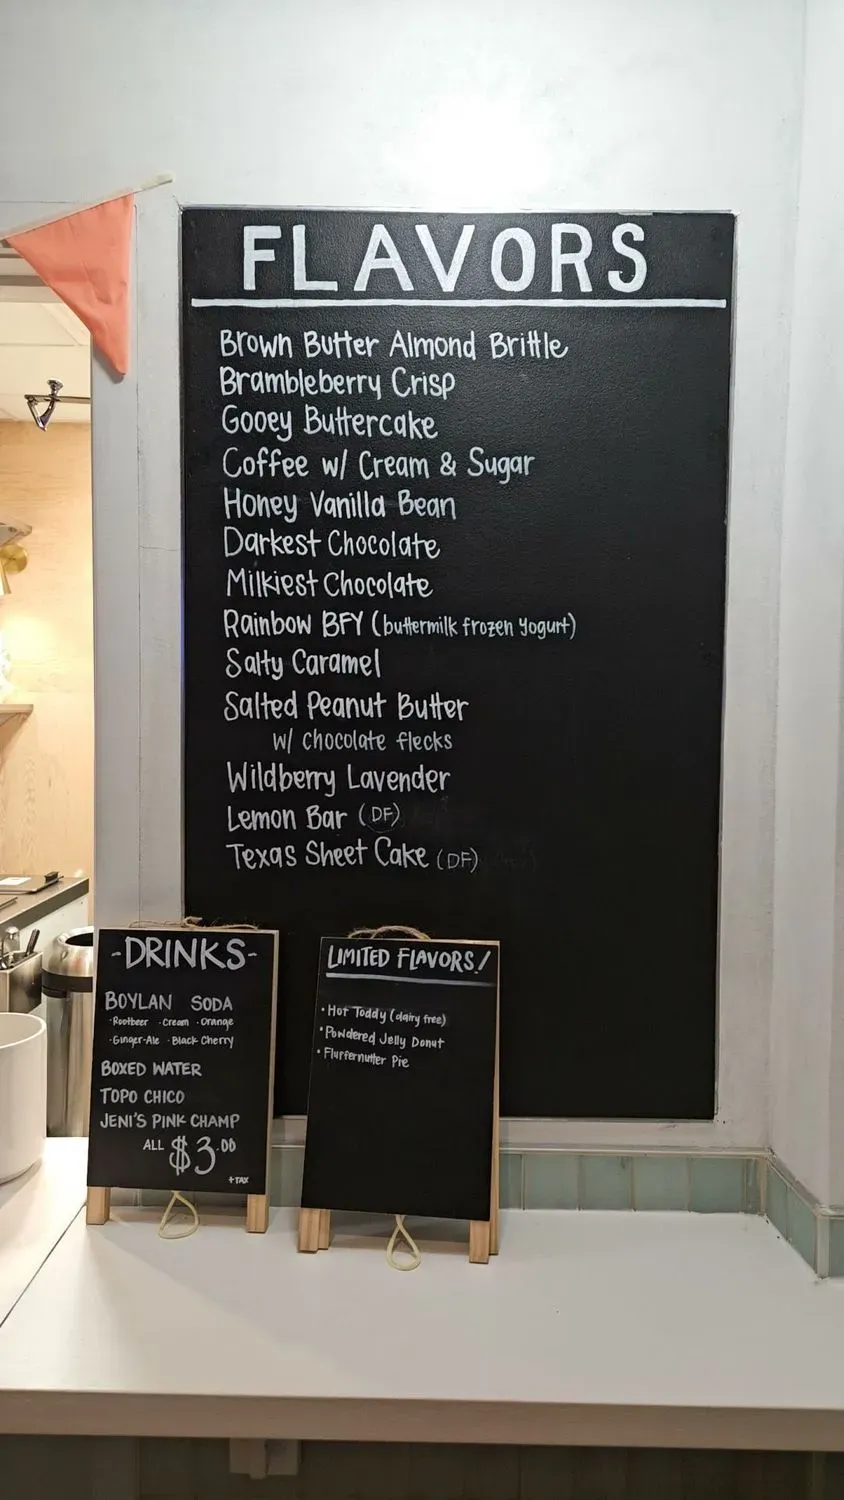 FLAVORS
Brown Butter Almond Brittle
Brambleberry Crisp
Gooey Buttercake
Coffee w/ Cream & Sugar
Honey Vanilla Bean
Darkest Chocolate
Milkiest Chocolate
Rainbow BFY (buttermilk frozen yogurt)
Salty Caramel
Salted Peanut Butter
w/ chocolate flecks
Wildberry Lavender
Lemon Bar (DF)
Texas Sheet Cake (DF)
-DRINKS-
BOYLAN SODA
·Rootbeer ·Cream ·Orange
·Ginger-Ale ·Black Cherry
BOXED WATER
TOPO CHICO
JENI'S PINK CHAMP
ALL $3.00
+TAX
LIMITED FLAVORS!
• Hot Toddy (dairy free)
• Powdered Jelly Donut
• Fluffernutter Pie